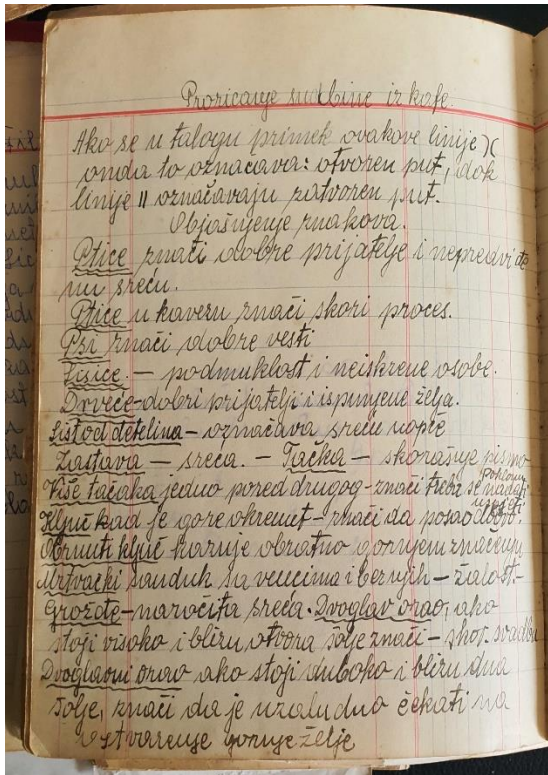 Proricanje sudbine iz kafe.
Ako se u talogu primek ovakove linije )(
onda to označava: otvoren put, dok
linije || označavaju zatvoren put.
Objašnjenje znakova.
Ptice znači dobre prijatelje i nepredviđe
nu sreću.
Ptice u kavezu znači skori proces.
Psi znači dobre vesti
Lisice. — podmuklost i neiskrene osobe.
Drveće - dobri prijatelji i ispunjene želja.
List od detelina - označava sreću uopće
Zastava — sreća. — Tačka — skorašnje pismo
Više tačaka jedno pored drugog - znači treba se nadati
poklonu
Ključ kad je gore okrenut - znači da posao dobro
uspeti
Obrnuti ključ kazuje obratno gornjem značenju
Mrtvački sanduk sa vencima i bez njih — žalost. -
Grožđe - naročita sreća. Dvoglav orao, ako
stoji visoko i blizu otvora šolje znači - skor. svadbu
Dvoglavni orao ako stoji duboko i blizu dna
šolje, znači da je uzaludno čekati na
ostvarenje gornje želje